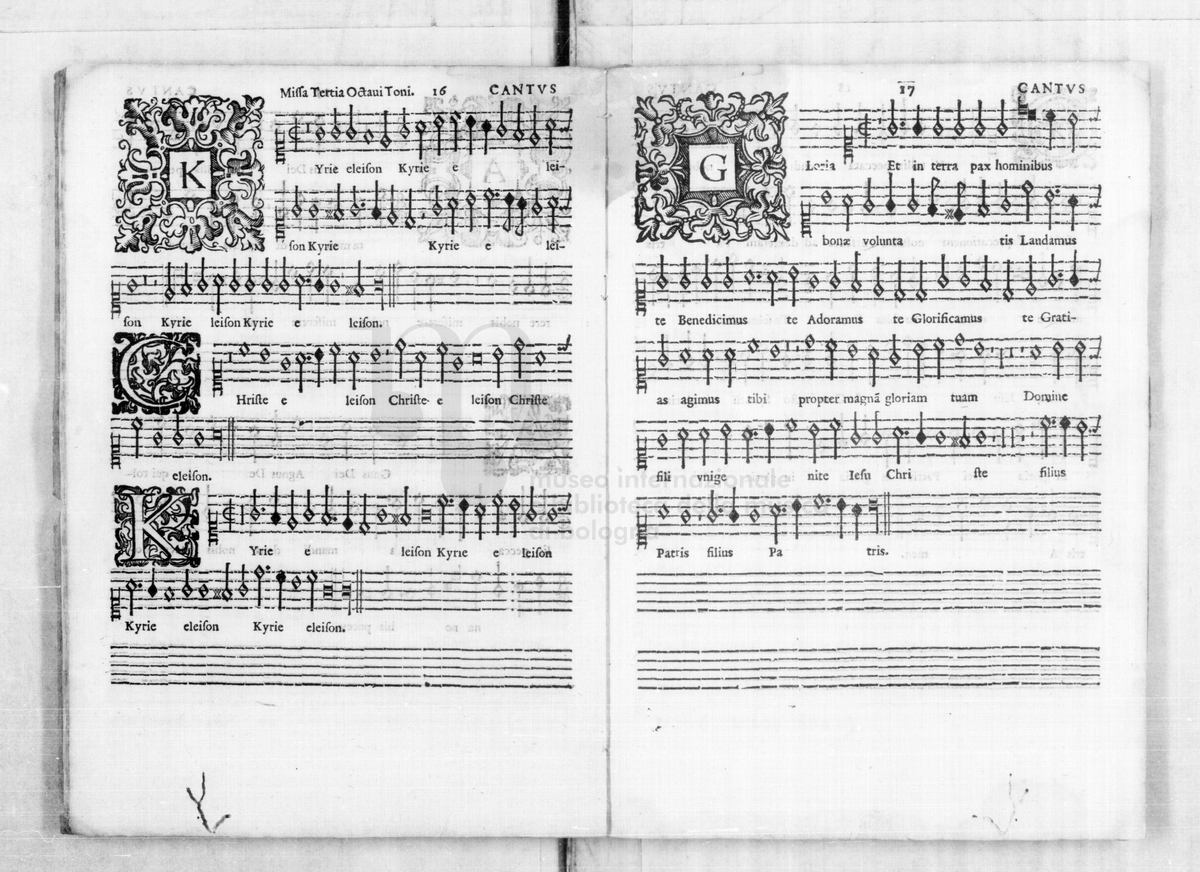 Missa Tertia Octaui Toni. 16 CANTVS
K Yrie eleison Kyrie e lei-
son Kyrie Kyrie e lei-
son Kyrie leison Kyrie e leison.
C Hriste e leison Christe e leison Christe
eleison.
K Yrie e leison Kyrie e leison
Kyrie eleison Kyrie eleison.
17 CANTVS
G Loria Et in terra pax hominibus
bonæ volunta tis Laudamus
te Benedicimus te Adoramus te Glorificamus te Grati-
as agimus tibi propter magnã gloriam tuam Domine
fili vnige nite Iesu Chri ste filius
Patris filius Pa tris.
museo internazionale
e biblioteca della musica
di bologna